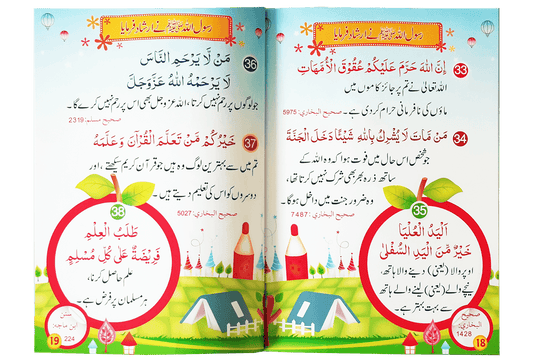 رسول اللہ ﷺ نے ارشاد فرمایا
33
اِنَّ اللهَ حَرَّمَ عَلَيْكُمْ عُقُوْقَ الْأُمَّهَاتِ
اللہ تعالیٰ نے تم پر جائز کاموں میں
ماؤں کی نافرمانی حرام کر دی ہے۔
صحیح البخاری: 5975
34
مَنْ مَاتَ لَا يُشْرِكُ بِاللهِ شَيْئًا دَخَلَ الْجَنَّةَ
جو شخص اس حال میں فوت ہوا کہ وہ اللہ کے
ساتھ ذرہ بھر بھی شرک نہیں کرتا تھا،
وہ ضرور جنت میں داخل ہوگا۔
صحیح البخاری: 7487
35
اَلْيَدُ الْعُلْيَا
خَيْرٌ مِّنَ الْيَدِ السُّفْلٰى
اوپر والا (یعنی) دینے والا ہاتھ،
نیچے والے (یعنی) لینے والے ہاتھ
سے بہت بہتر ہے۔
صحیح
البخاری:
1428
18
رسول اللہ ﷺ نے ارشاد فرمایا
36
مَنْ لَّا يَرْحَمِ النَّاسَ
لَا يَرْحَمْهُ اللهُ عَزَّوَجَلَّ
جو لوگوں پر رحم نہیں کرتا، اللہ عزوجل بھی اس پر رحم نہیں کرے گا۔
صحیح مسلم: 2319
37
خَيْرُكُمْ مَنْ تَعَلَّمَ الْقُرْآنَ وَعَلَّمَهُ
تم میں سے بہترین لوگ وہ ہیں جو قرآن کریم سیکھتے، اور
دوسروں کو اس کی تعلیم دیتے ہیں۔
صحیح البخاری: 5027
38
طَلَبُ الْعِلْمِ
فَرِيْضَةٌ عَلٰى كُلِّ مُسْلِمٍ
علم حاصل کرنا،
ہر مسلمان پر فرض ہے۔
سنن
ابن ماجہ:
224
19